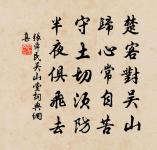 楚客對吳山
歸心常自苦
守土切須防
半夜俱飛去
張舜民吳山堂詞典網
集